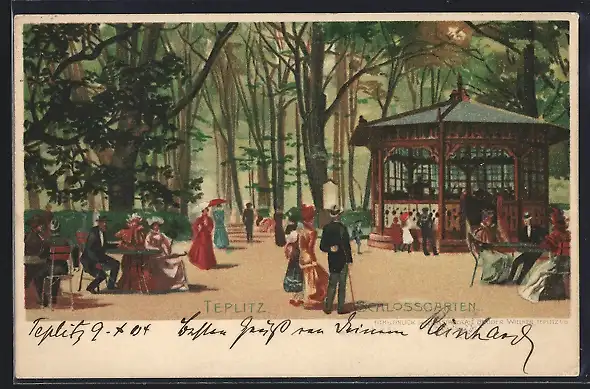 TEPLITZ.
SCHLOSSGARTEN.
Teplitz 9. X 04 Besten Gruß von Deinem Reinhard